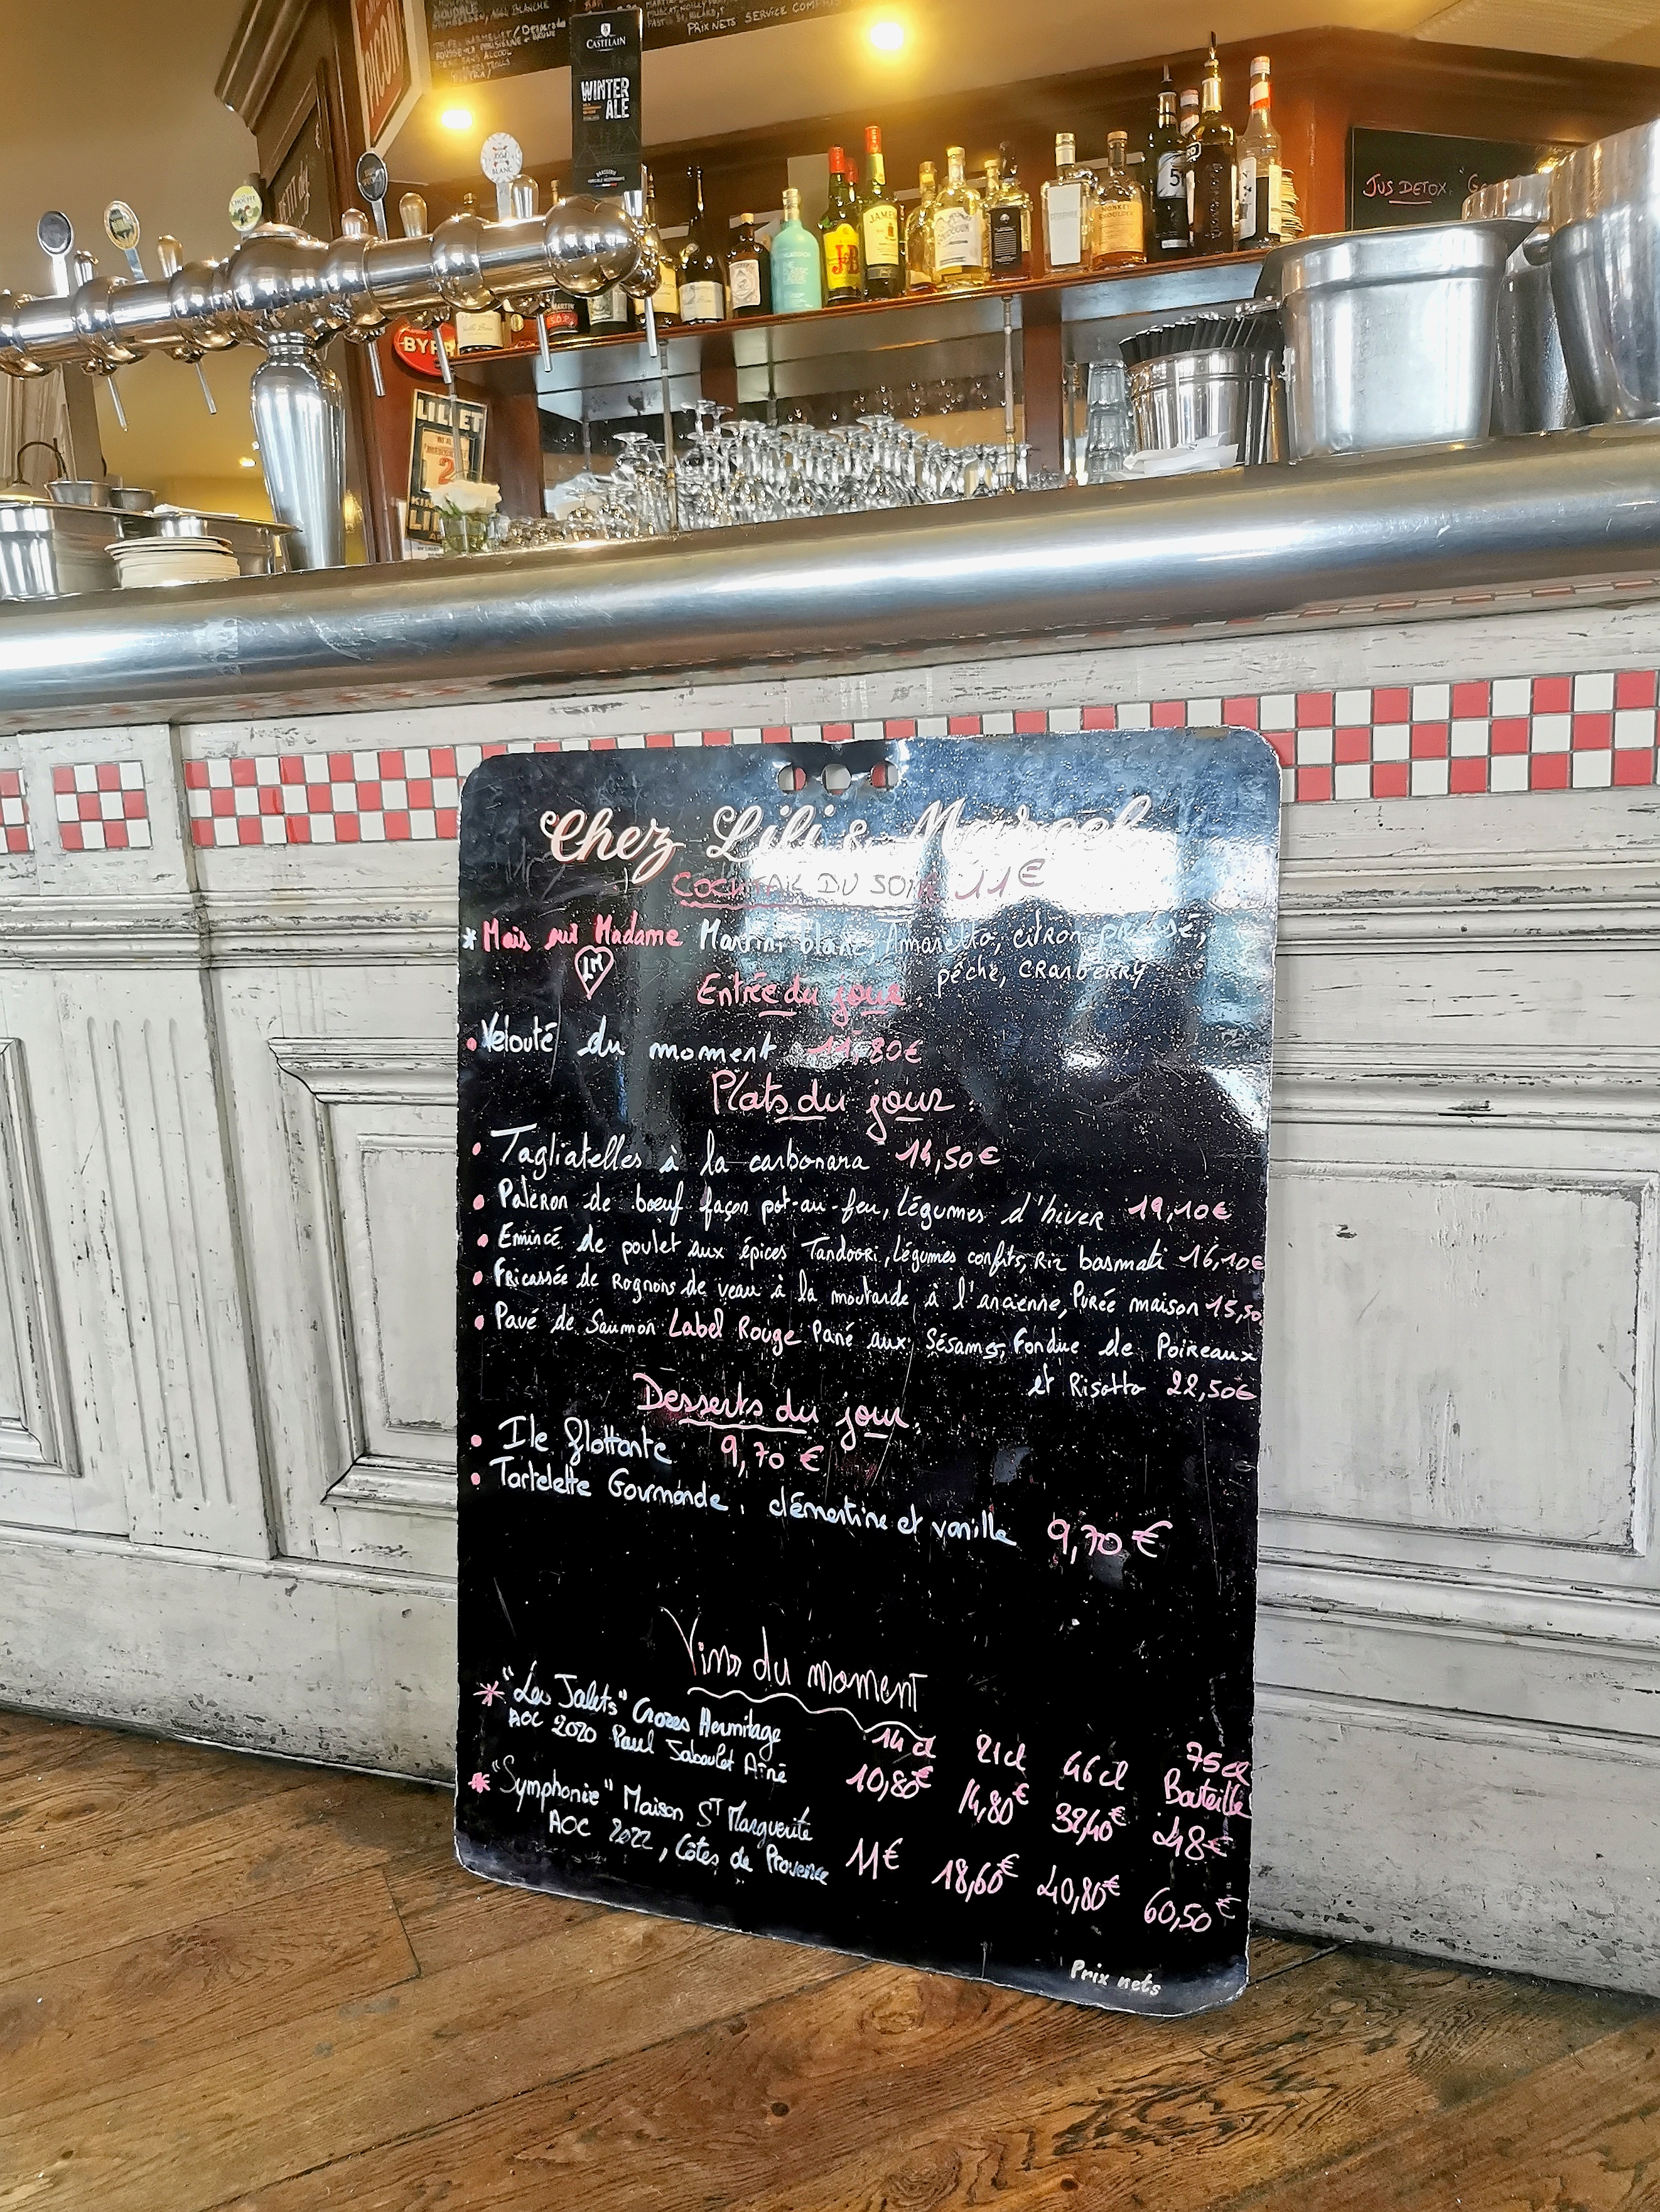 CASTELAIN
WINTER
ALE
BLANCHE
PRIX NETS SERVICE
SANS ALCOOL
1664
BLANC
JUS DETOX
J&B
BYRRH
LILLET
2
Chez Lili & Marcel
COCKTAIL DU SOIR 11€
* Mais oui Madame Martini blanc, Amaretto, citron pressé,
pêche, CRANBERRY
LM
Entrée du jour:
• Velouté du moment 11,80€
Plats du jour:
• Tagliatelles à la carbonara 14,50€
• Paleron de boeuf façon pot-au-feu, légumes d'hiver 19,10€
• Emincé de poulet aux épices Tandoori, légumes confits, Riz basmati 16,10€
• Fricassée de Rognons de veau à la moutarde à l'ancienne, Purée maison 15,50
• Pavé de Saumon Label Rouge Pané aux Sésames, Fondue de Poireaux
et Risotto 22,50€
Desserts du jour.
• Ile flottante 9,70 €
• Tartelette Gourmande : clémentine et vanille 9,70 €
Vins du moment
14 cl 21cl 46cl 75cl
Bouteille
* "Les Jalets" Crozes Hermitage
AOC 2020 Paul Jaboulet Aîné 10,80€ 14,80€ 32,40€ 48€
* "Symphonie" Maison ST Marguerite
AOC 2022, Côtes de Provence 11€ 18,60€ 40,80€ 60,50€
Prix nets